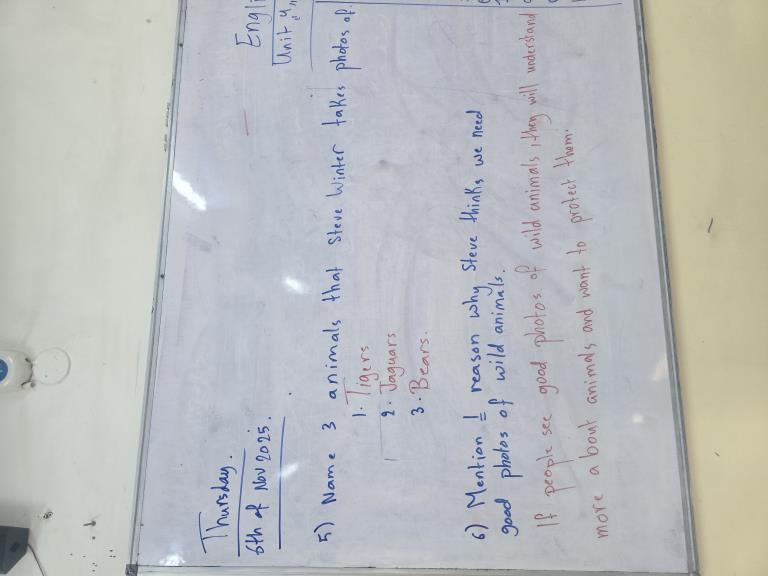 Thursday.
6th of Nov 2025.
Engli
Unit 4,
5) Name 3 animals that Steve Winter takes photos of.
1. Tigers
2. Jaguars
3. Bears.
6) Mention 1 reason why Steve thinks we need
good photos of wild animals.
If people see good photos of wild animals, they will understand
more about animals and want to protect them.